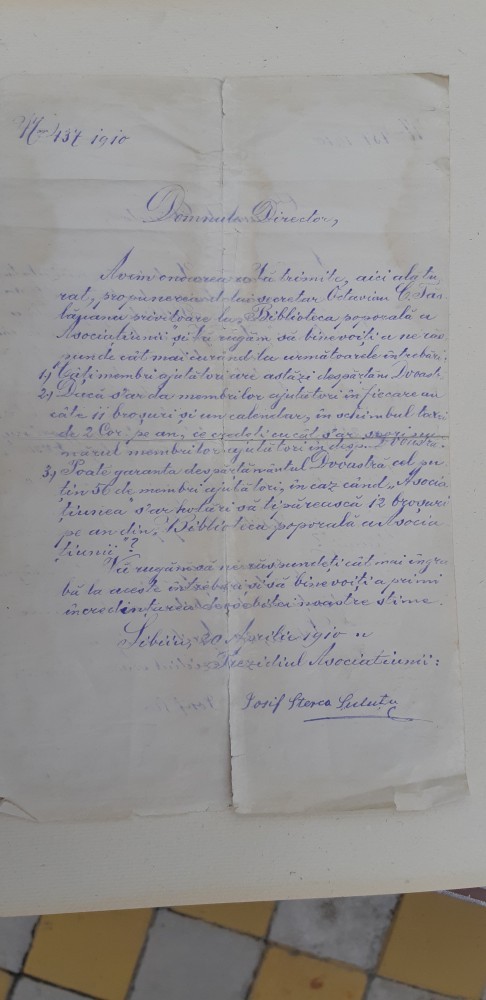 Nro 437 1910
Domnule Director,
Avem onoarea a Vă trimite, aici alătu
rat, propunerea dlui secretar Octavian C. Tăs-
lăuanu privitoare la „Biblioteca poporală a
Asociațiunii" și Vă rugăm să binevoiți a ne răs
punde cât mai curând la următoarele întrebări:
1, Câți membri ajutători are astăzi despărțăm. Dvoastr.
2, Dacă s'ar da membrilor ajutători în fiecare an
câte 11 broșuri și un calendar, în schimbul taxei
de 2 Cor. pe an, ce credeți cu cât s'ar spori nu
mărul membrilor ajutători în desp.
3, Poate garanta despărțământul Dvoastră cel pu
țin 50 de membri ajutători, în caz când „Asocia
țiunea s'ar hotărî să tipărească 12 broșuri
pe an din „Biblioteca poporală a Asocia
țiunii"?
Vă rugăm să ne răspundeți cât mai îngra
bă la aceste întrebări și să binevoiți a primi
încredințarea deosebitei noastre stime.
Sibiiu, 20 Aprilie 1910 n
Prezidiul Asociațiunii:
Iosif Sterca Șuluțu